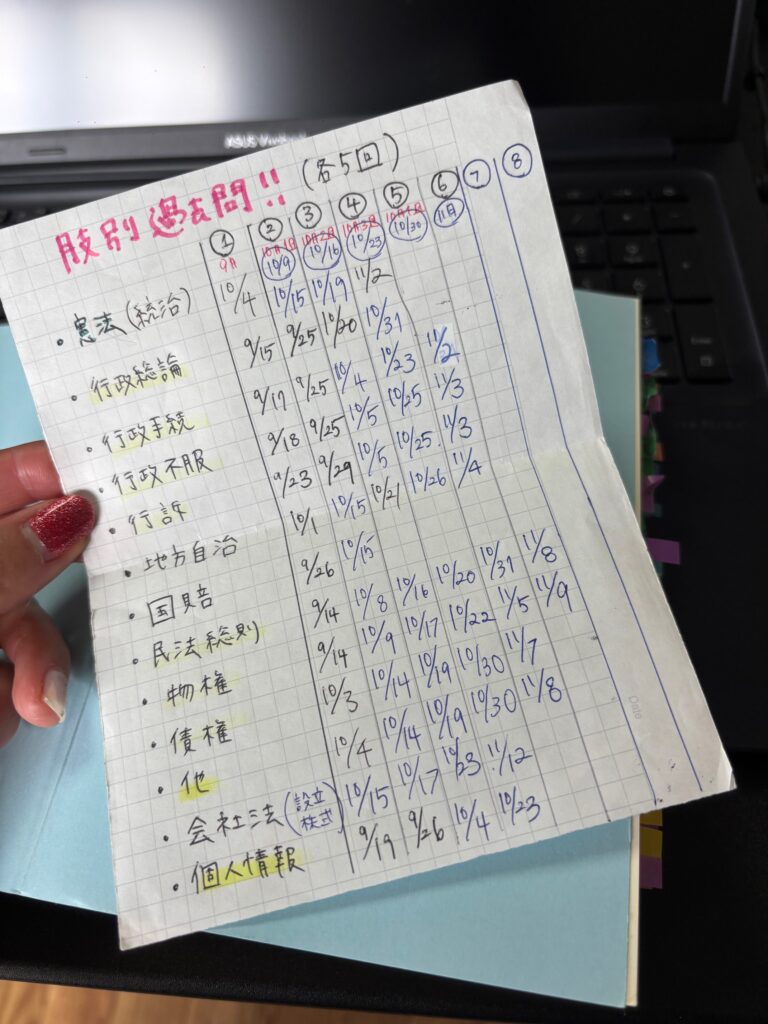 ASUS Vivobook
肢別過去問!! (各5回)
① ② ③ ④ ⑤ ⑥ ⑦ ⑧
9月 10/9 10/16 10/23 10/30 11月
・憲法(統治) 10/4 10/15 10/19 11/2
・行政総論 9/15 9/25 10/20 10/31
・行政手続 9/17 9/25 10/4 10/23 11/2
・行政不服 9/18 9/25 10/5 10/25 11/3
・行訴 9/23 9/29 10/5 10/25 11/3
・地方自治 10/1 10/15 10/21 10/26 11/4
・国賠 9/26 10/15
・民法総則 9/14 10/8 10/16 10/20 10/31 11/8
・物権 9/14 10/9 10/17 10/22 11/5 11/9
・債権 10/3 10/14 10/19 10/30 11/7
・他 10/4 10/14 10/19 10/30 11/8
・会社法(設立株式) 10/15 10/17 10/23 11/12
・個人情報 9/19 9/26 10/4 10/23
Date